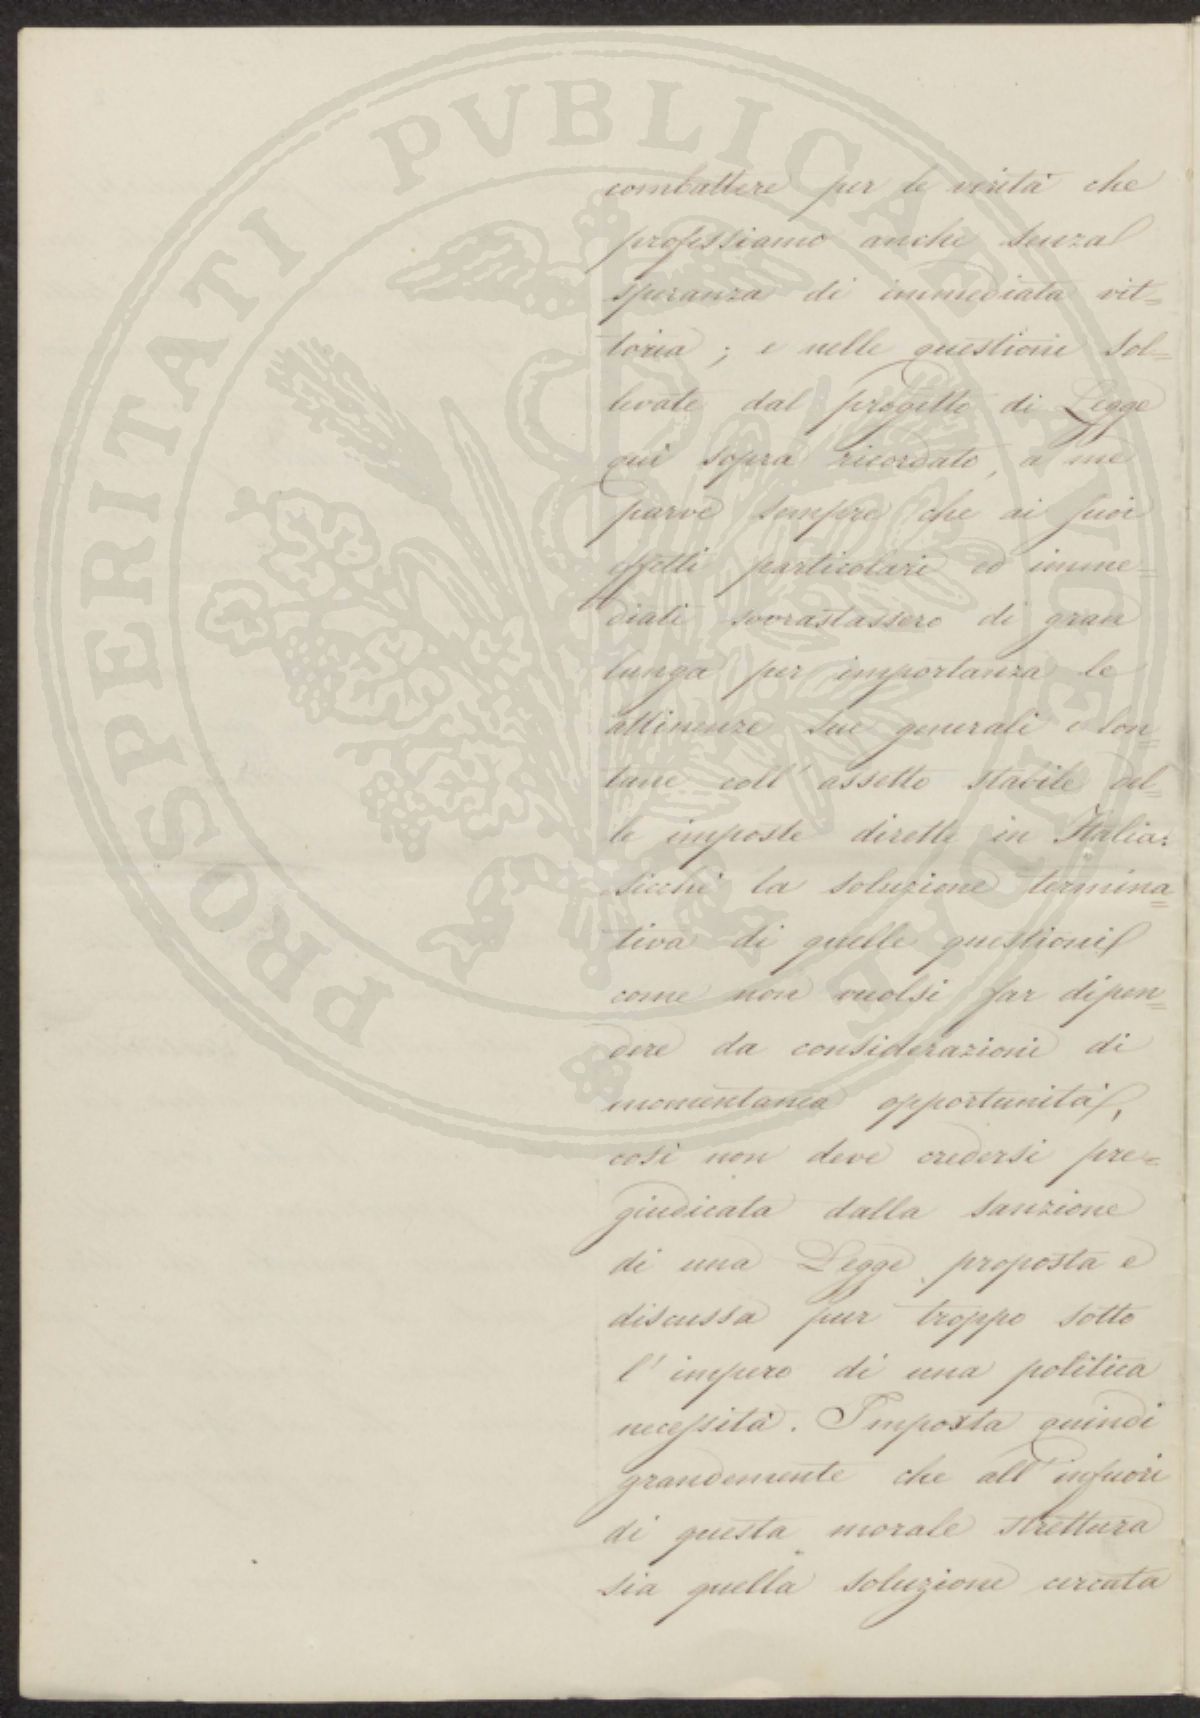 PROSPERITATI PVBLICAE AVGENDAE
combattere per le verità che
professiamo anche senza
speranza di immediata vit=
toria ; e nelle questioni sol=
levate dal progetto di Legge
qui sopra ricordato, a me
parve sempre che ai suoi
effetti particolari ed imme=
diati sovrastassero di gran
lunga per importanza le
attinenze sue generali e lon=
tane coll' assetto stabile del=
le imposte dirette in Italia:
sicchè la soluzione termina=
tiva di quelle questioni
come non vuolsi far dipen=
dere da considerazioni di
momentanea opportunità,
così non deve credersi pre=
giudicata dalla sanzione
di una Legge proposta e
discussa pur troppo sotto
l' impero di una politica
necessità. Importa quindi
grandemente che all' infuori
di questa morale strettura
sia quella soluzione cercata